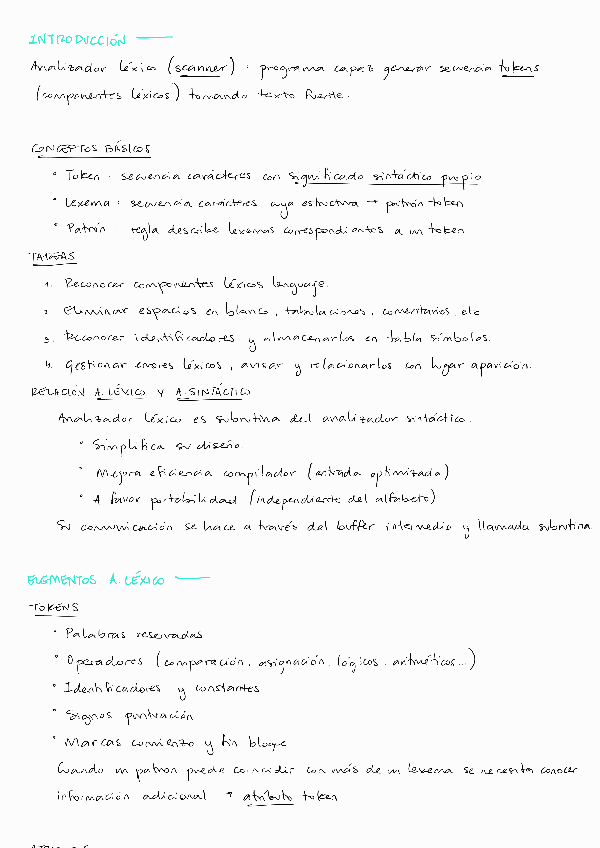 INTRODUCCIÓN
Analizador léxico (scanner) : programa capaz generar secuencia tokens
(componentes léxicos) tomando texto fuente.
CONCEPTOS BÁSICOS
• Token : secuencia carácteres con significado sintáctico propio
• Lexema : secuencia carácteres cuya estructura → patrón token
• Patrón : regla describe lexemas correspondientes a un token
TAREAS
1. Reconocer componentes léxicos lenguage.
2. Eliminar espacios en blanco, tabulaciones, comentarios, etc
3. Reconocer identificadores y almacenarlos en tabla símbolos.
4. Gestionar errores léxicos, avisar y relacionarlos con lugar aparición.
RELACIÓN A. LÉXICO Y A. SINTÁCTICO
Analizador léxico es subrutina del analizador sintáctico.
• Simplifica su diseño
• Mejora eficiencia compilador (entrada optimizada)
• A favor portabilidad (independiente del alfabeto)
Su comunicación se hace a través del buffer intermedio y llamada subrutina
ELEMENTOS A. LÉXICO
TOKENS
• Palabras reservadas
• Operadores (comparación, asignación, lógicos, aritméticos...)
• Identificadores y constantes
• Signos puntuación
• Marcas comienzo y fin bloque
Cuando un patron puede coincidir con más de un lexema se necesita conocer
información adicional → atributo token